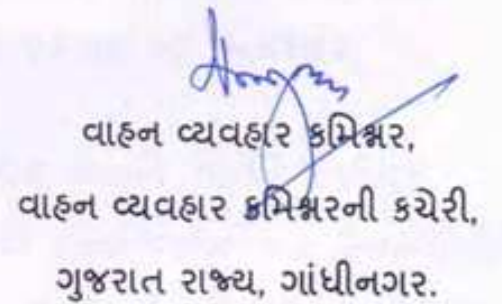 વાહન વ્યવહાર કમિશ્નર,
વાહન વ્યવહાર કમિશ્નરની કચેરી,
ગુજરાત રાજ્ય, ગાંધીનગર.